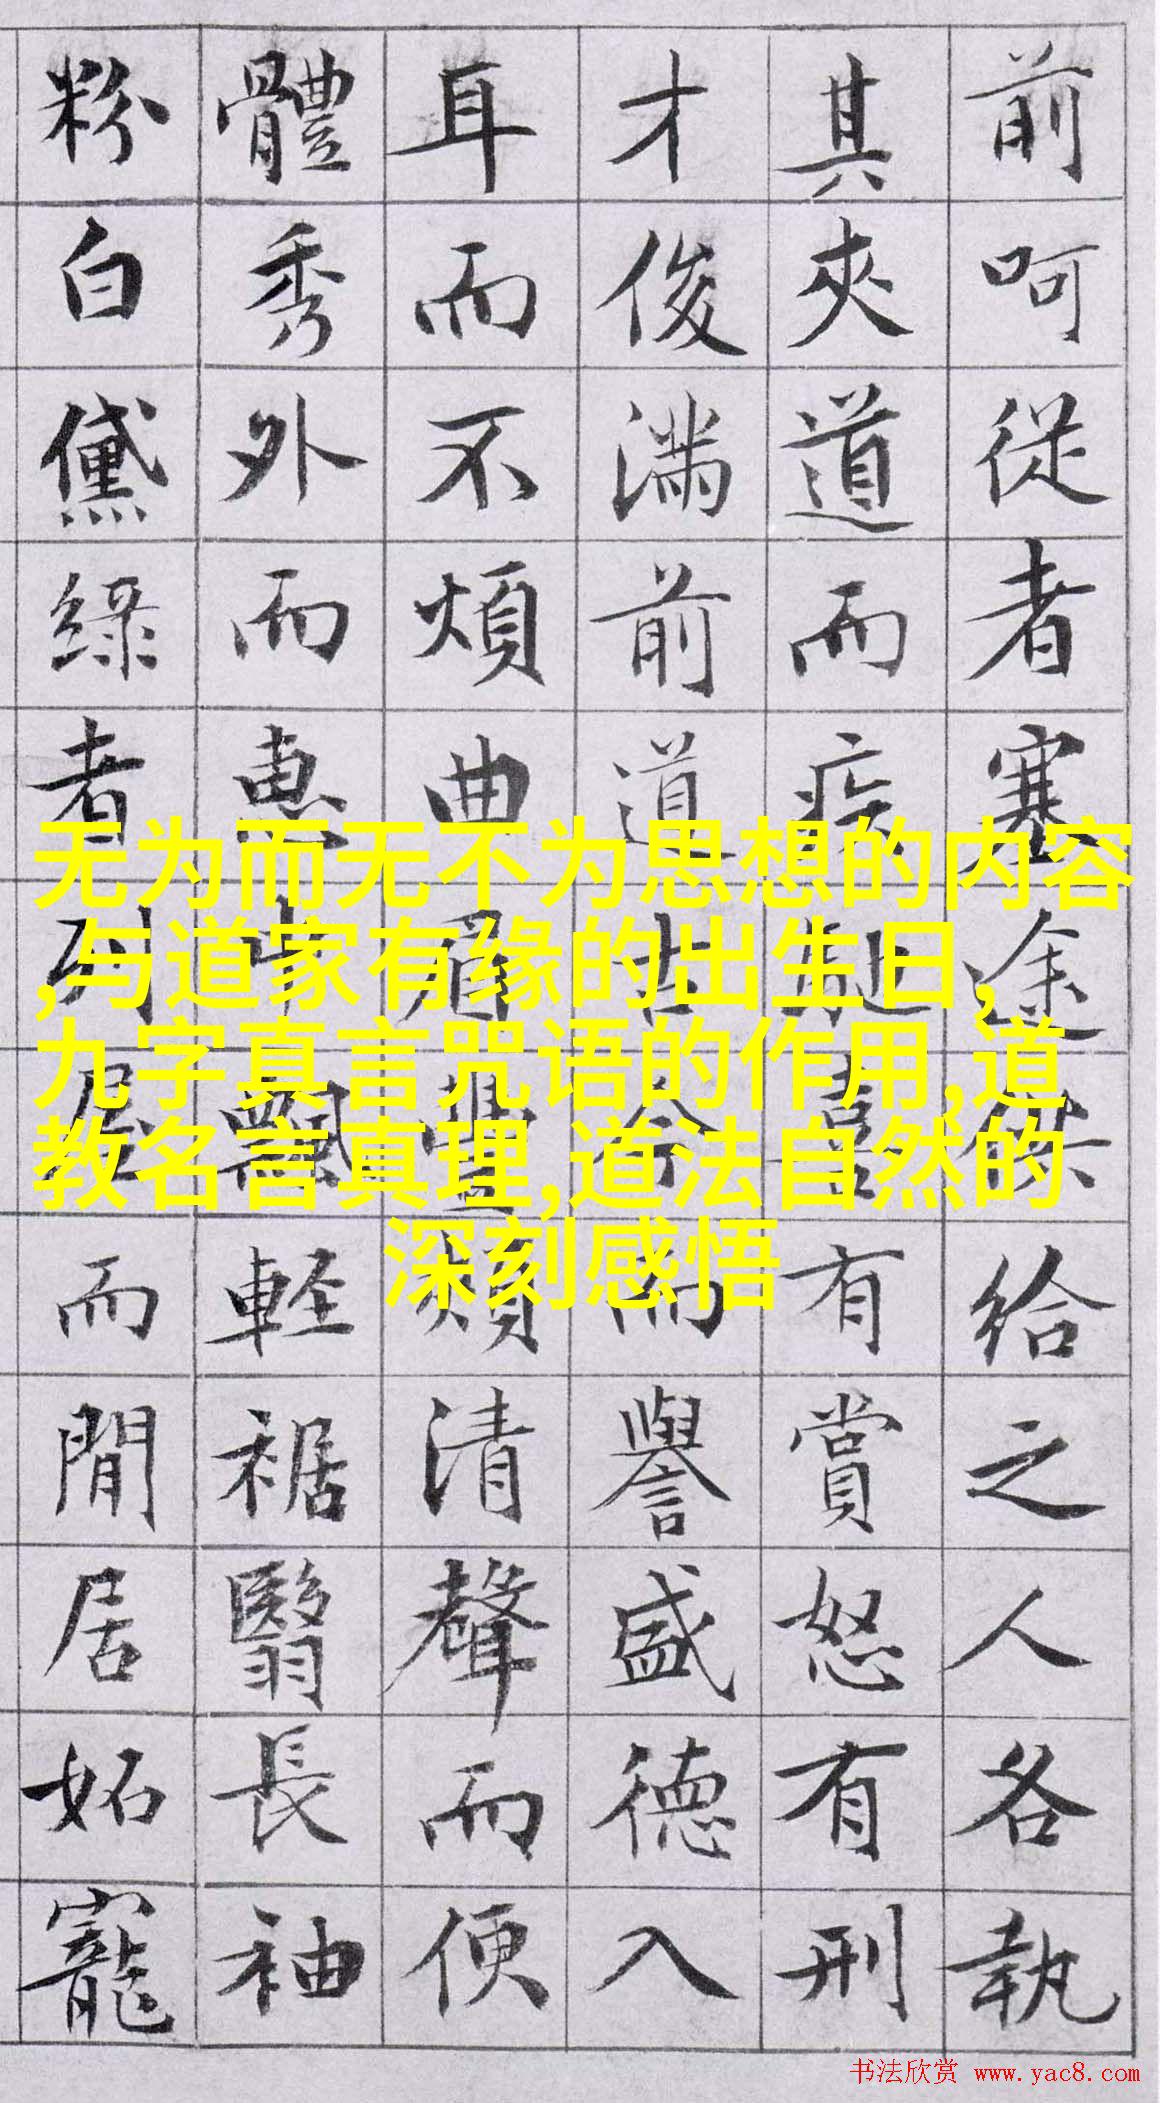 前呵從者塞途供給之人各執
其夾道而疾馳喜有賞怒有刑
才俊満前道古今而譽盛徳入
耳而不煩曲眉豐頰清聲而便
體秀外而惠中飄軽裾翳長袖
粉白黛緑者列屋而閒居妬寵
无为而无不为思想的内容
,与道家有缘的出生日,
九字真言咒语的作用,道
教名言真理,道法自然的
深刻感悟
书法欣赏 www.yac8.com